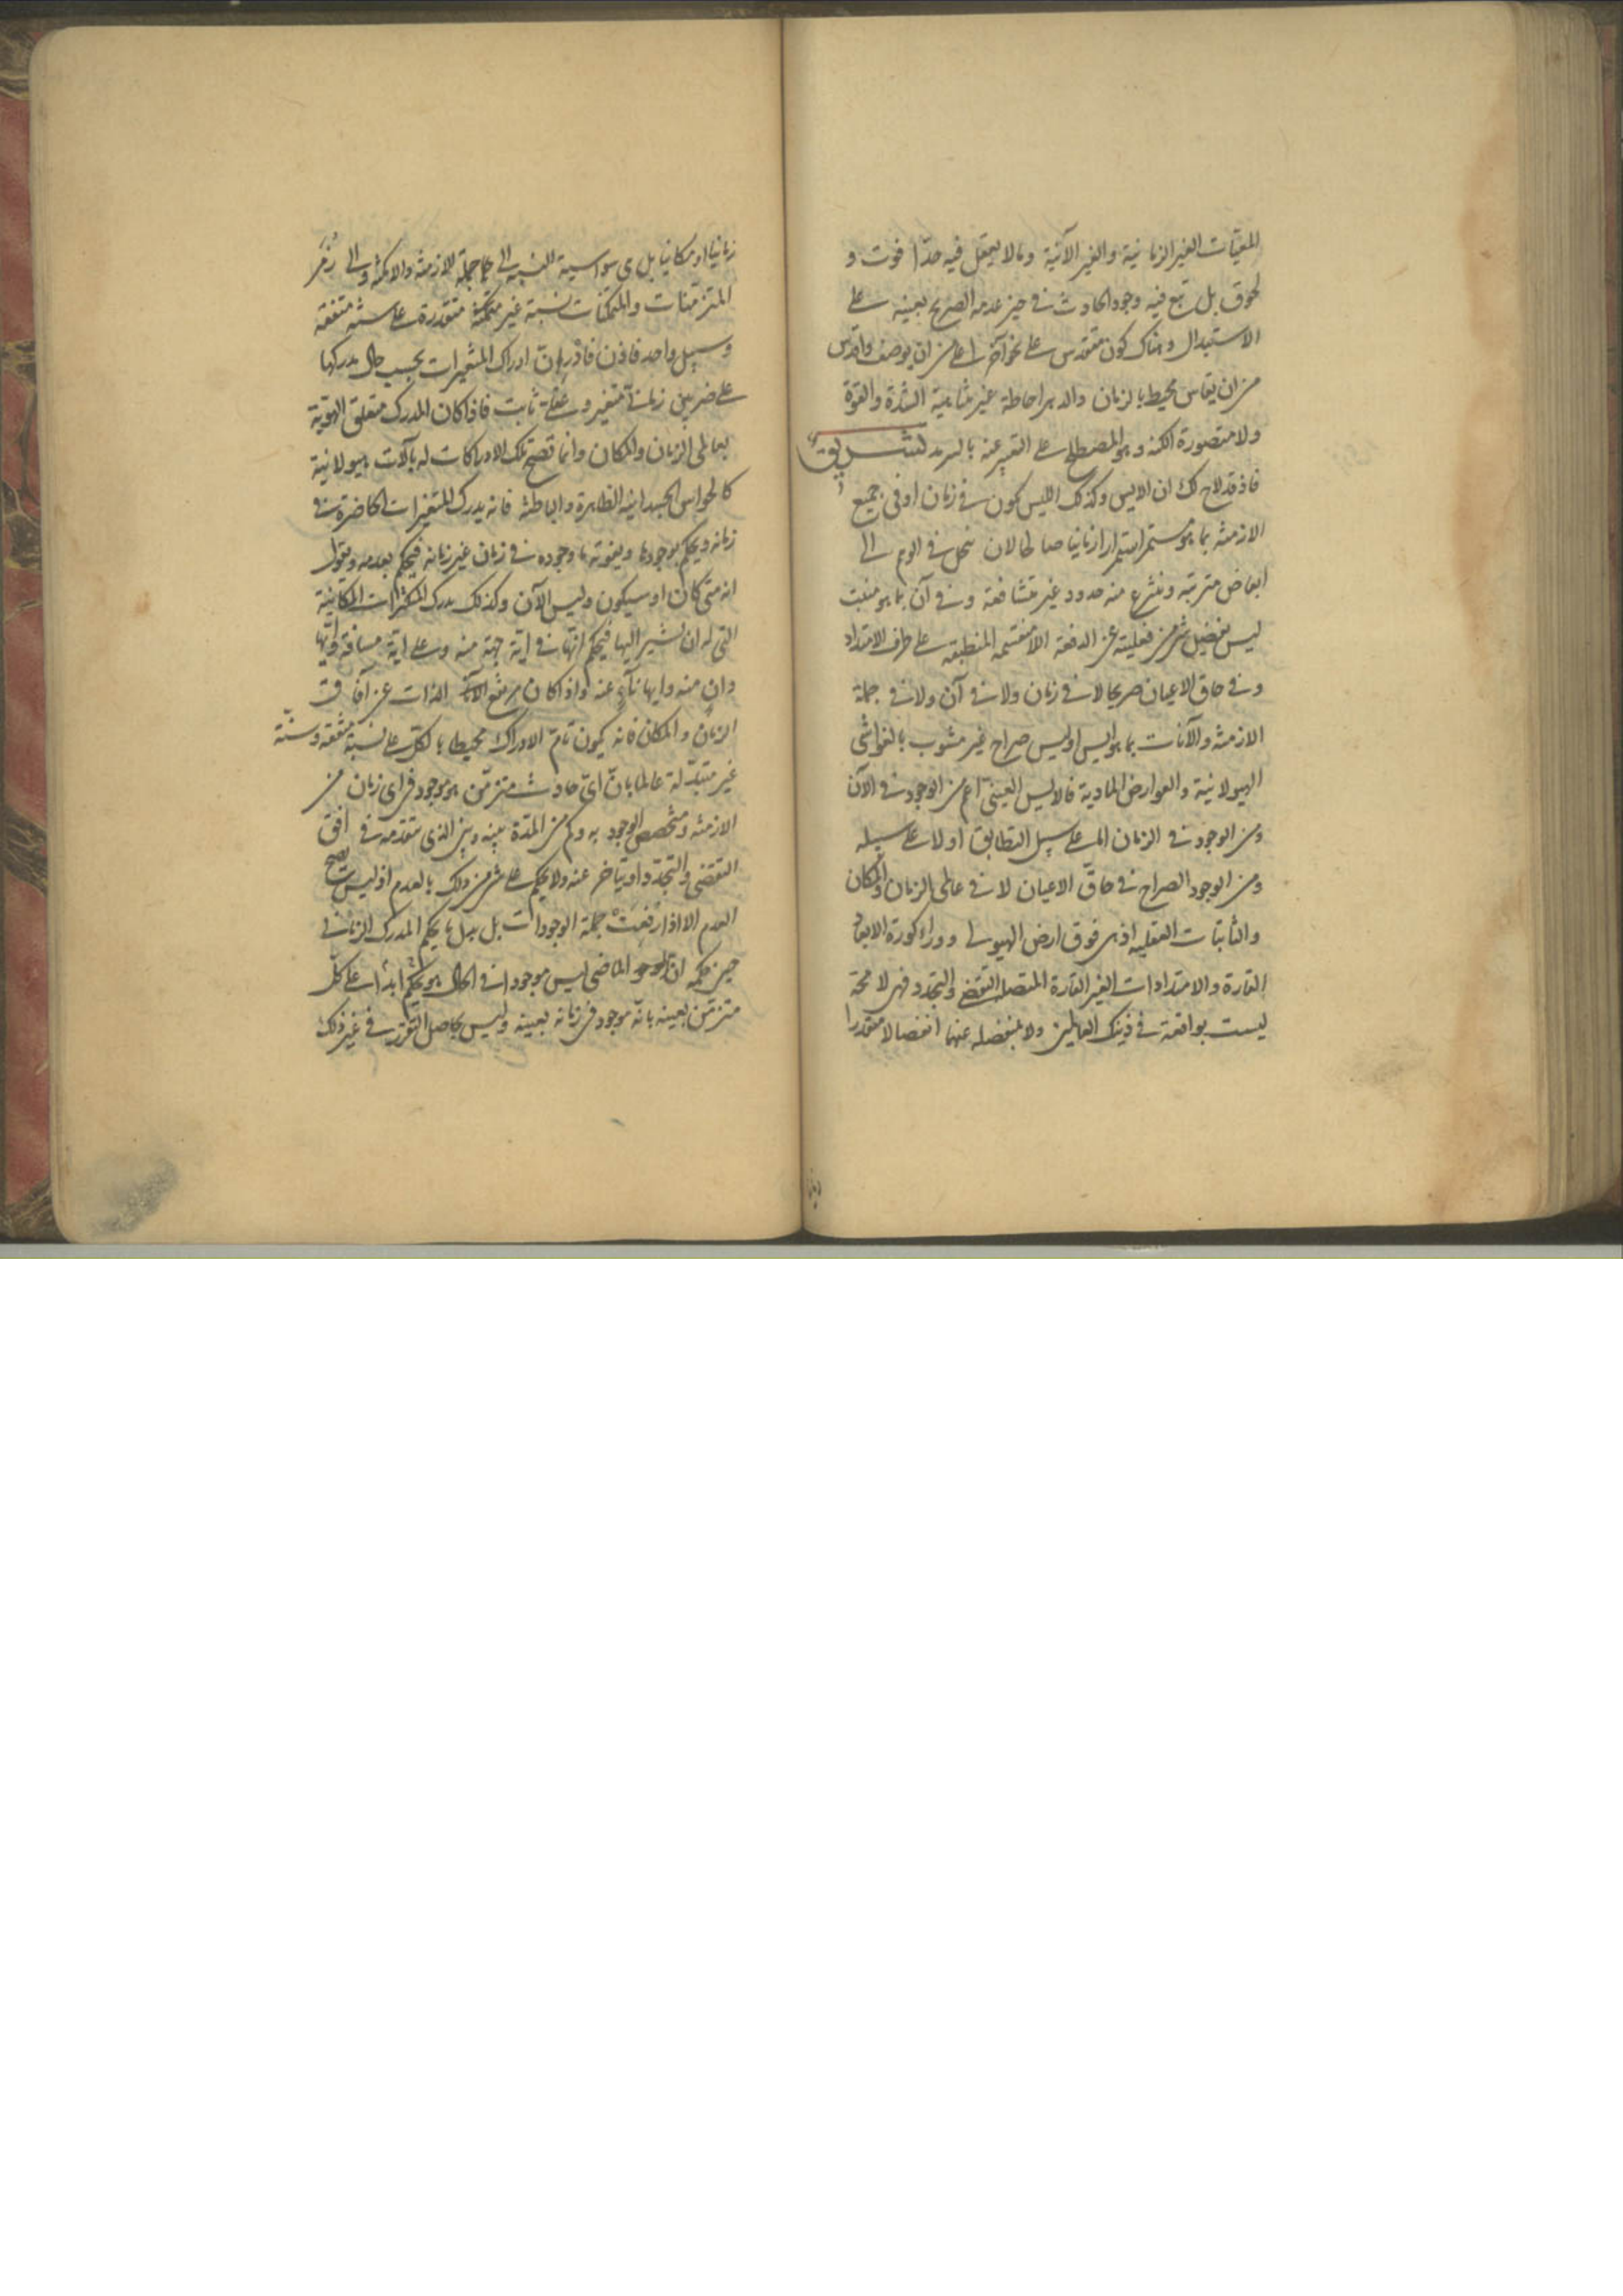 المعيّات الغير الزمانية والغير الآنية وما لا يعقل فيه حدّا فوت و
لحوق بل يقع فيه وجود الحادث في حيز عدمه الصريح بعينه على
الاستبدال وهناك كون متقدس على نحو آخر اعلى من ان يوصف واقدس
من ان يقاس محيط بالزمان والدهر احاطة غير متناهية الشدة والقوة
ولا متصورة الكنه وهو المصطلح على التعبير عنه بالسرمد تشريق
فاذ قد لاح لك ان الايس وكذلك الليس يكون في زمان او في جميع
الازمنة بما هو مستمر استمرارا زمانيا صالحا لان ينحل في الوهم الى
ابعاض مترتبة وينتزع منه حدود غير متشافعة وفي آن بما هو منبت
ليس يفضل شئ من فعليته عن الدفعة الامنقسمة المنطبقة على طرف الامتداد
وفي حاق الاعيان صريحا لا في زمان ولا في آن ولا في جملة
الازمنة والآنات بما هو ايس او ليس صراح غير مشوب بالغواشى
الهيولانية والعوارض المادية فالايس العينى اعم من الوجود في الآن
ومن الوجود في الزمان اما على سبيل التطابق او لا على سبيله
ومن الوجود الصراح في حاقّ الاعيان لا في عالمى الزمان والمكان
والثابتات العقلية اذ هى فوق ارض الهيولى ووراء كورة الابعاد
القارة والامتدادات الغير القارة المتصلة التقضى والتجدد فهى لا محة
ليست بواقعة في ذينك العالمين ولا بمنفصلة عنهما انفصالا متقدرا
زمانيا او مكانيا بل هى سواسية النسبة الى جملة الازمنة والامكنة والى زمر
المتزمّنات والمتمكنات نسبة غير متكممة متقدرة على سنة متفقة
وسبيل واحد فاذن فادر ان ادراك المتغيرات بحسب حال مدركها
على ضربين زمانى متغير وعقلى ثابت فاذا كان المدرك متعلق الهوية
بعالمى الزمان والمكان وانما تصح تلك الادراكات له بآلات هيولانية
كالحواس الجسدانية الظاهرة والباطنة فانه يدرك المتغيرات الحاضرة في
زمانه ويحكم بوجودها ويفوته ما وجوده في زمان غير زمانه فيحكم بعدمه ويقول
انه متى كان او سيكون وليس الآن وكذلك يدرك المتكثرات المكانية
التى له ان يشير اليها فيحكم انها في اية جهة منه وعلى اية مسافة وايها
دان منه وايها ناء عنه واذا كان مرتفع الذات عن آفاق
الزمان والمكان فانه يكون تامّ الادراك محيطا بالكل على نسبة متفقة وسنّة
غير متبدّلة عالما بانّ اىّ حادث متزمّن هو موجود في اى زمان من
الازمنة ومتخصص الوجود به وكم من المدّة بينه وبين الذى تقدمه في افق
التقضى والتجدد او يتأخر عنه ولا يحكم على شئ من ذلك بالعدم اذ ليس يصح
العدم الا اذا رفعت جملة الوجودات بل بدل ما يحكم المدرك الزمانى
حين حكمه ان الموجود الماضى ليس موجودا في الحال هو يحكم ابدا على كلّ
متزمّن بعينه بانه موجود في زمانه بعينه وليس بحاصل التقرر في غير ذلك